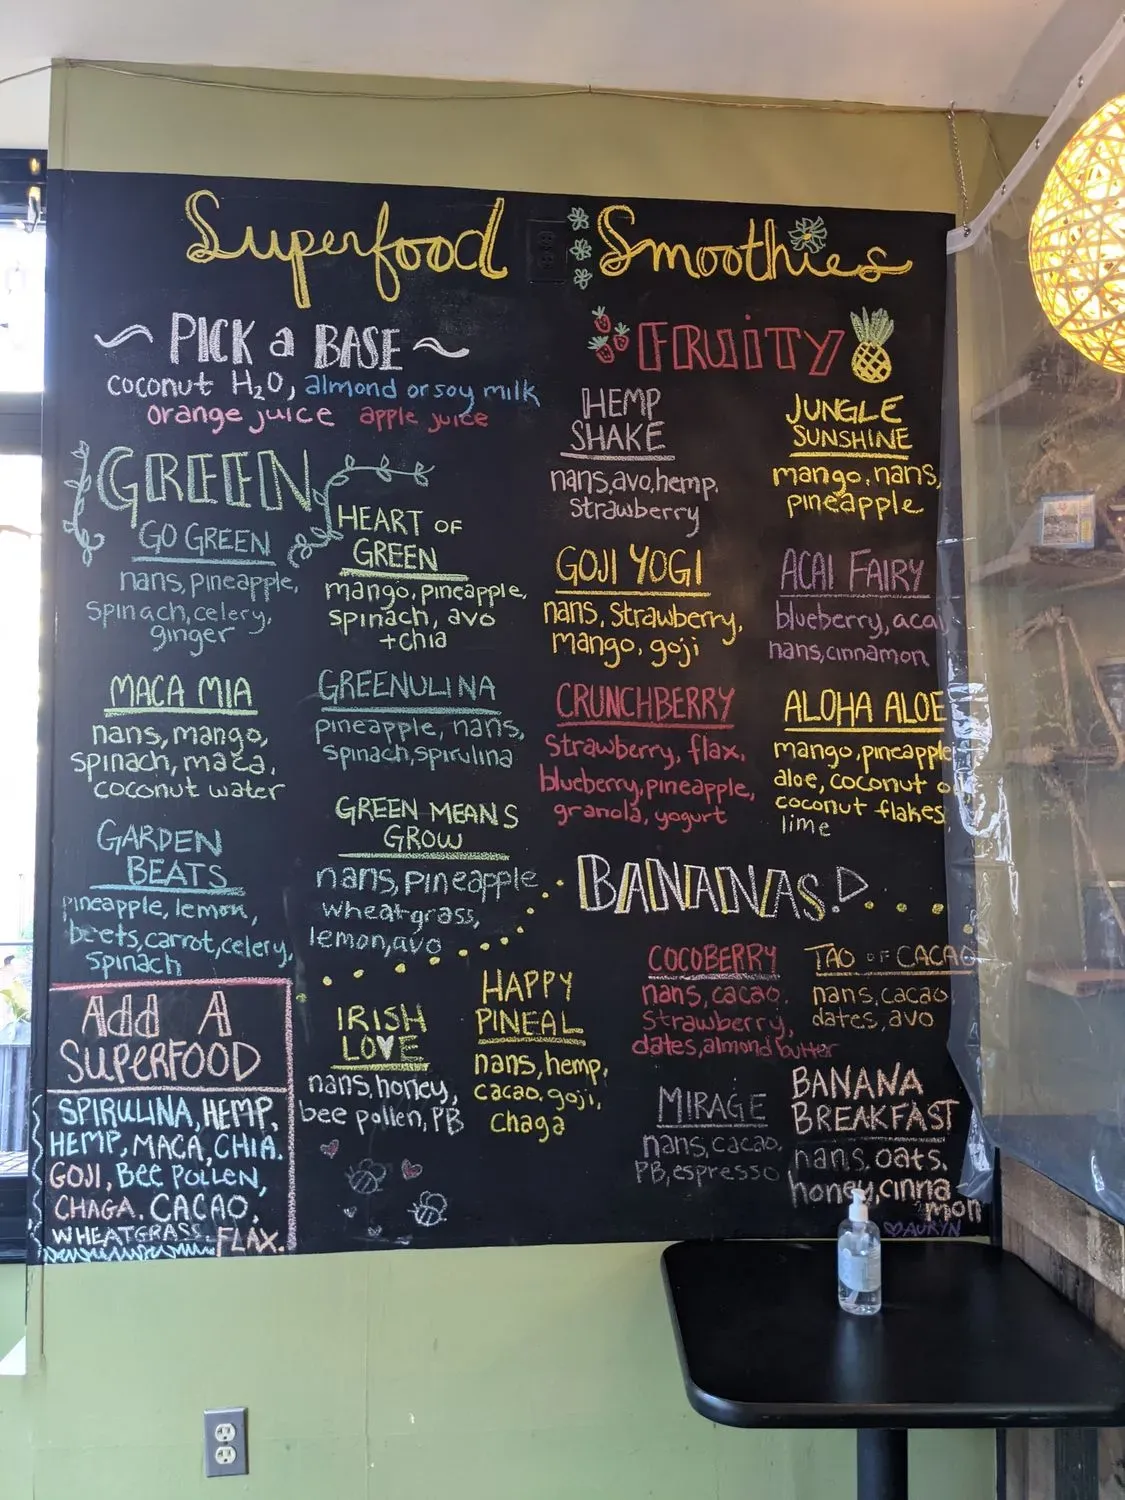 Superfood Smoothies
PICK a BASE
coconut H₂O, almond or soy milk
orange juice apple juice
GREEN
GO GREEN
nans, pineapple,
spinach, celery,
ginger
HEART OF
GREEN
mango, pineapple,
spinach, avo
+chia
MACA MIA
nans, mango,
spinach, maca,
coconut water
GREENULINA
pineapple, nans,
spinach, spirulina
GARDEN
BEATS
pineapple, lemon,
beets, carrot, celery,
spinach
GREEN MEANS
GROW
nans, pineapple
wheatgrass,
lemon, avo
Add A
SUPERFOOD
SPIRULINA, HEMP,
HEMP, MACA, CHIA.
GOJI, BEE POLLEN,
CHAGA. CACAO,
WHEATGRASS. FLAX.
FRUiTY
HEMP
SHAKE
nans, avo, hemp,
strawberry
JUNGLE
SUNSHINE
mango, nans,
pineapple
GOJI YOGI
nans, strawberry,
mango, goji
ACAI FAIRY
blueberry, acai
nans, cinnamon
CRUNCHBERRY
strawberry, flax,
blueberry, pineapple,
granola, yogurt
ALOHA ALOE
mango, pineapple
aloe, coconut
coconut flakes
lime
BANANAS!
IRISH
LOVE
nans, honey,
bee pollen, PB
HAPPY
PINEAL
nans, hemp,
cacao, goji,
chaga
COCOBERRY
nans, cacao,
strawberry,
dates, almond butter
TAO OF CACAO
nans, cacao
dates, avo
MIRAGE
nans, cacao,
PB, espresso
BANANA
BREAKFAST
nans, oats,
honey, cinna-
mon
AURYN